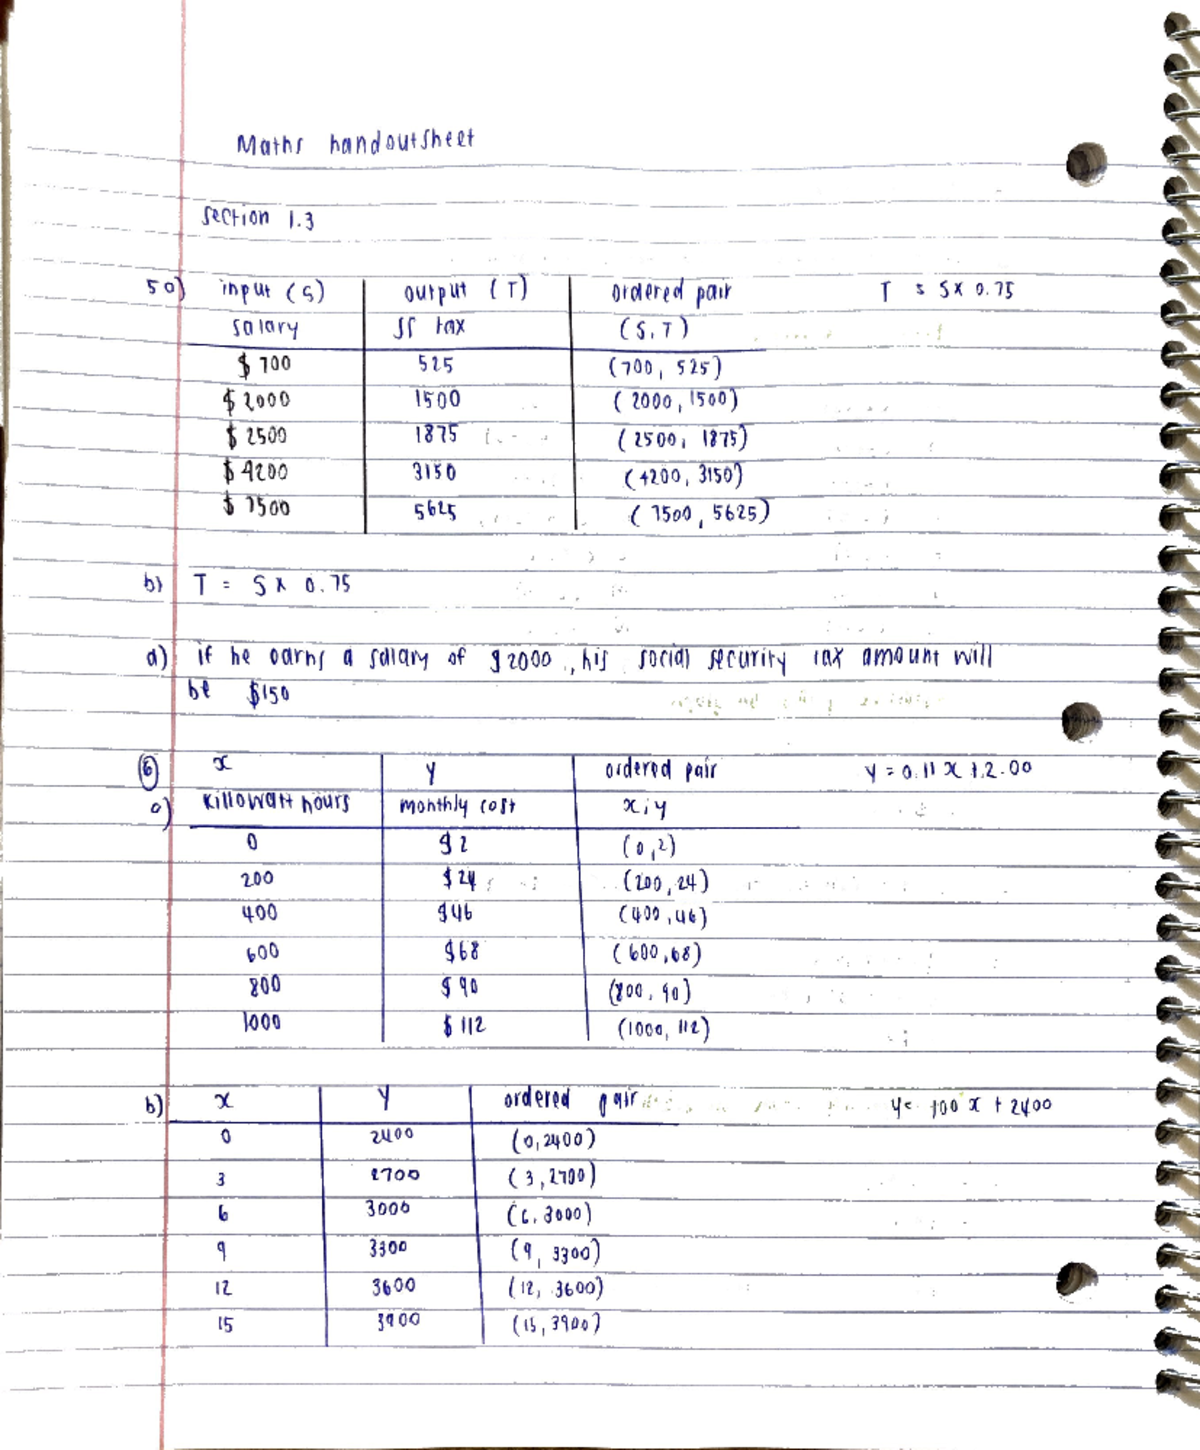 Maths handoutsheet
section 1.3
5a) input (S) output (T) ordered pair T = S x 0.75
salary SS tax (S, T)
$ 700 525 (700, 525)
$ 2000 1500 (2000, 1500)
$ 2500 1875 (2500, 1875)
$ 4200 3150 (4200, 3150)
$ 7500 5625 (7500, 5625)
b) T = S x 0.75
d) if he earns a salary of $2000, his social security tax amount will
be $150
6 x y ordered pair y = 0.11x + 2.00
a) Killowatt hours monthly cost x, y
0 $2 (0,2)
200 $24 (200, 24)
400 $46 (400, 46)
600 $68 (600, 68)
800 $90 (800, 90)
1000 $112 (1000, 112)
b) x y ordered pair y= 100x + 2400
0 2400 (0,2400)
3 2700 (3,2700)
6 3000 (6, 3000)
9 3300 (9, 3300)
12 3600 (12, 3600)
15 3900 (15, 3900)